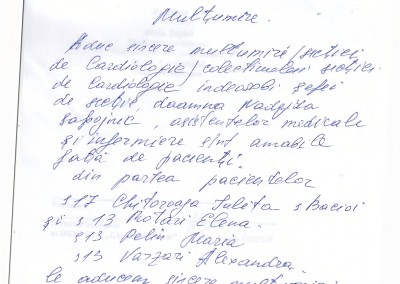 Mulțumire.
Aduc sincere mulțumiri secției
de Cardiologie / colectivului secției
de Cardiologie îndeosebi șefei
de secție, doamna Nadejda
asistentelor medicale
și infirmiere sînt amabile
față de pacienți.
din partea pacienților
s 17 Chitoroaga Iulita s Bacioi
și s 13 Rotari Elena.
s 13 Pelin Maria
s 13 Varzari Alexandra.
le aducem sincere mulțumiri